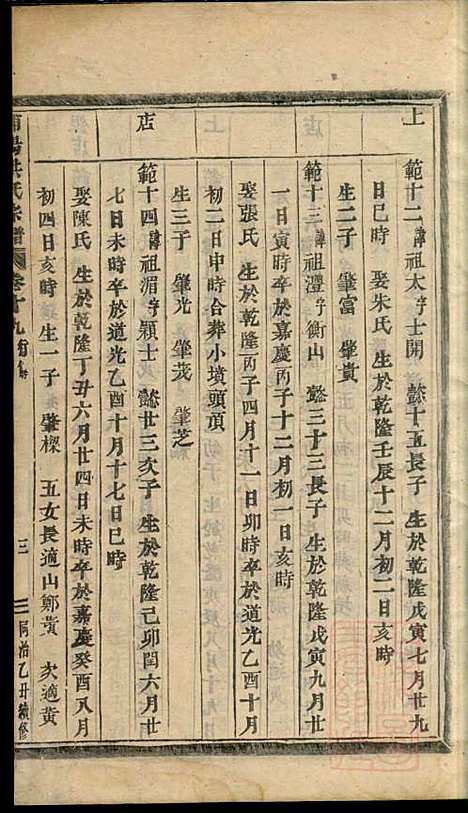 上
範十二諱祖太字士開 懿十五長子 生於乾隆戊寅七月廿九
日巳時 娶朱氏 生於乾隆壬辰十二月初二日亥時
生二子 肇富 肇貴
範十三諱祖灃字衡山 懿三十三長子 生於乾隆戊寅九月廿
一日寅時卒於嘉慶丙子十二月初一日亥時
娶張氏 生於乾隆丙子四月十一日卯時卒於道光乙酉十月
初二日申時合葬小墳頭頂
生三子 肇光 肇茂 肇芝
店
範十四諱祖湄字穎士 懿廿三次子 生於乾隆己卯閏六月廿
七日未時卒於道光乙酉十月十七日巳時
娶陳氏 生於乾隆丁丑六月廿四日未時卒於嘉慶癸酉八月
初四日亥時 生一子 肇樑 五女長適山鄭黃 次適黃
浦陽洪氏宗譜 卷十九 三 同治乙丑續修